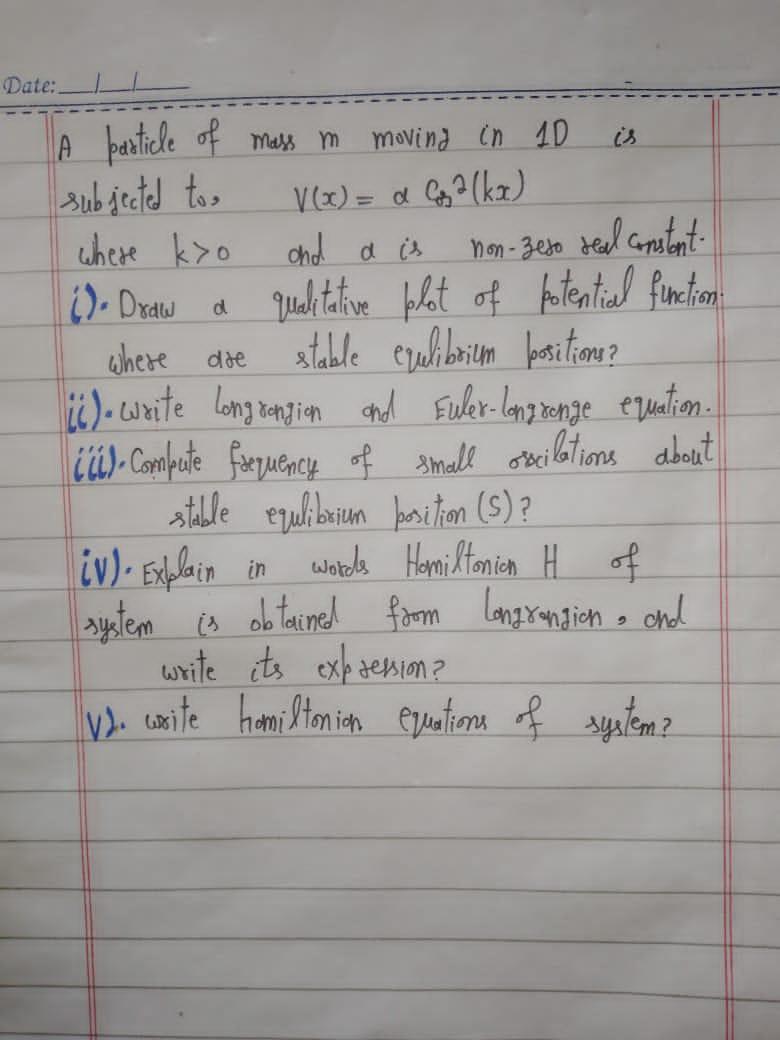 Date: __/__/____
A particle of mass m moving in 1D is
subjected to, V(x) = α Cos²(kx)
where k>0 and α is non-zero real constant.
i). Draw a qualitative plot of potential function.
where are stable equlibrium positions?
ii). write Langrangian and Euler-langrange equation.
iii). Compute frequency of small oscilations about
stable equlibrium position (S)?
iv). Explain in words Hamiltonian H of
system is obtained from Langrangian, and
write its expression?
v). write hamiltonian equations of system?